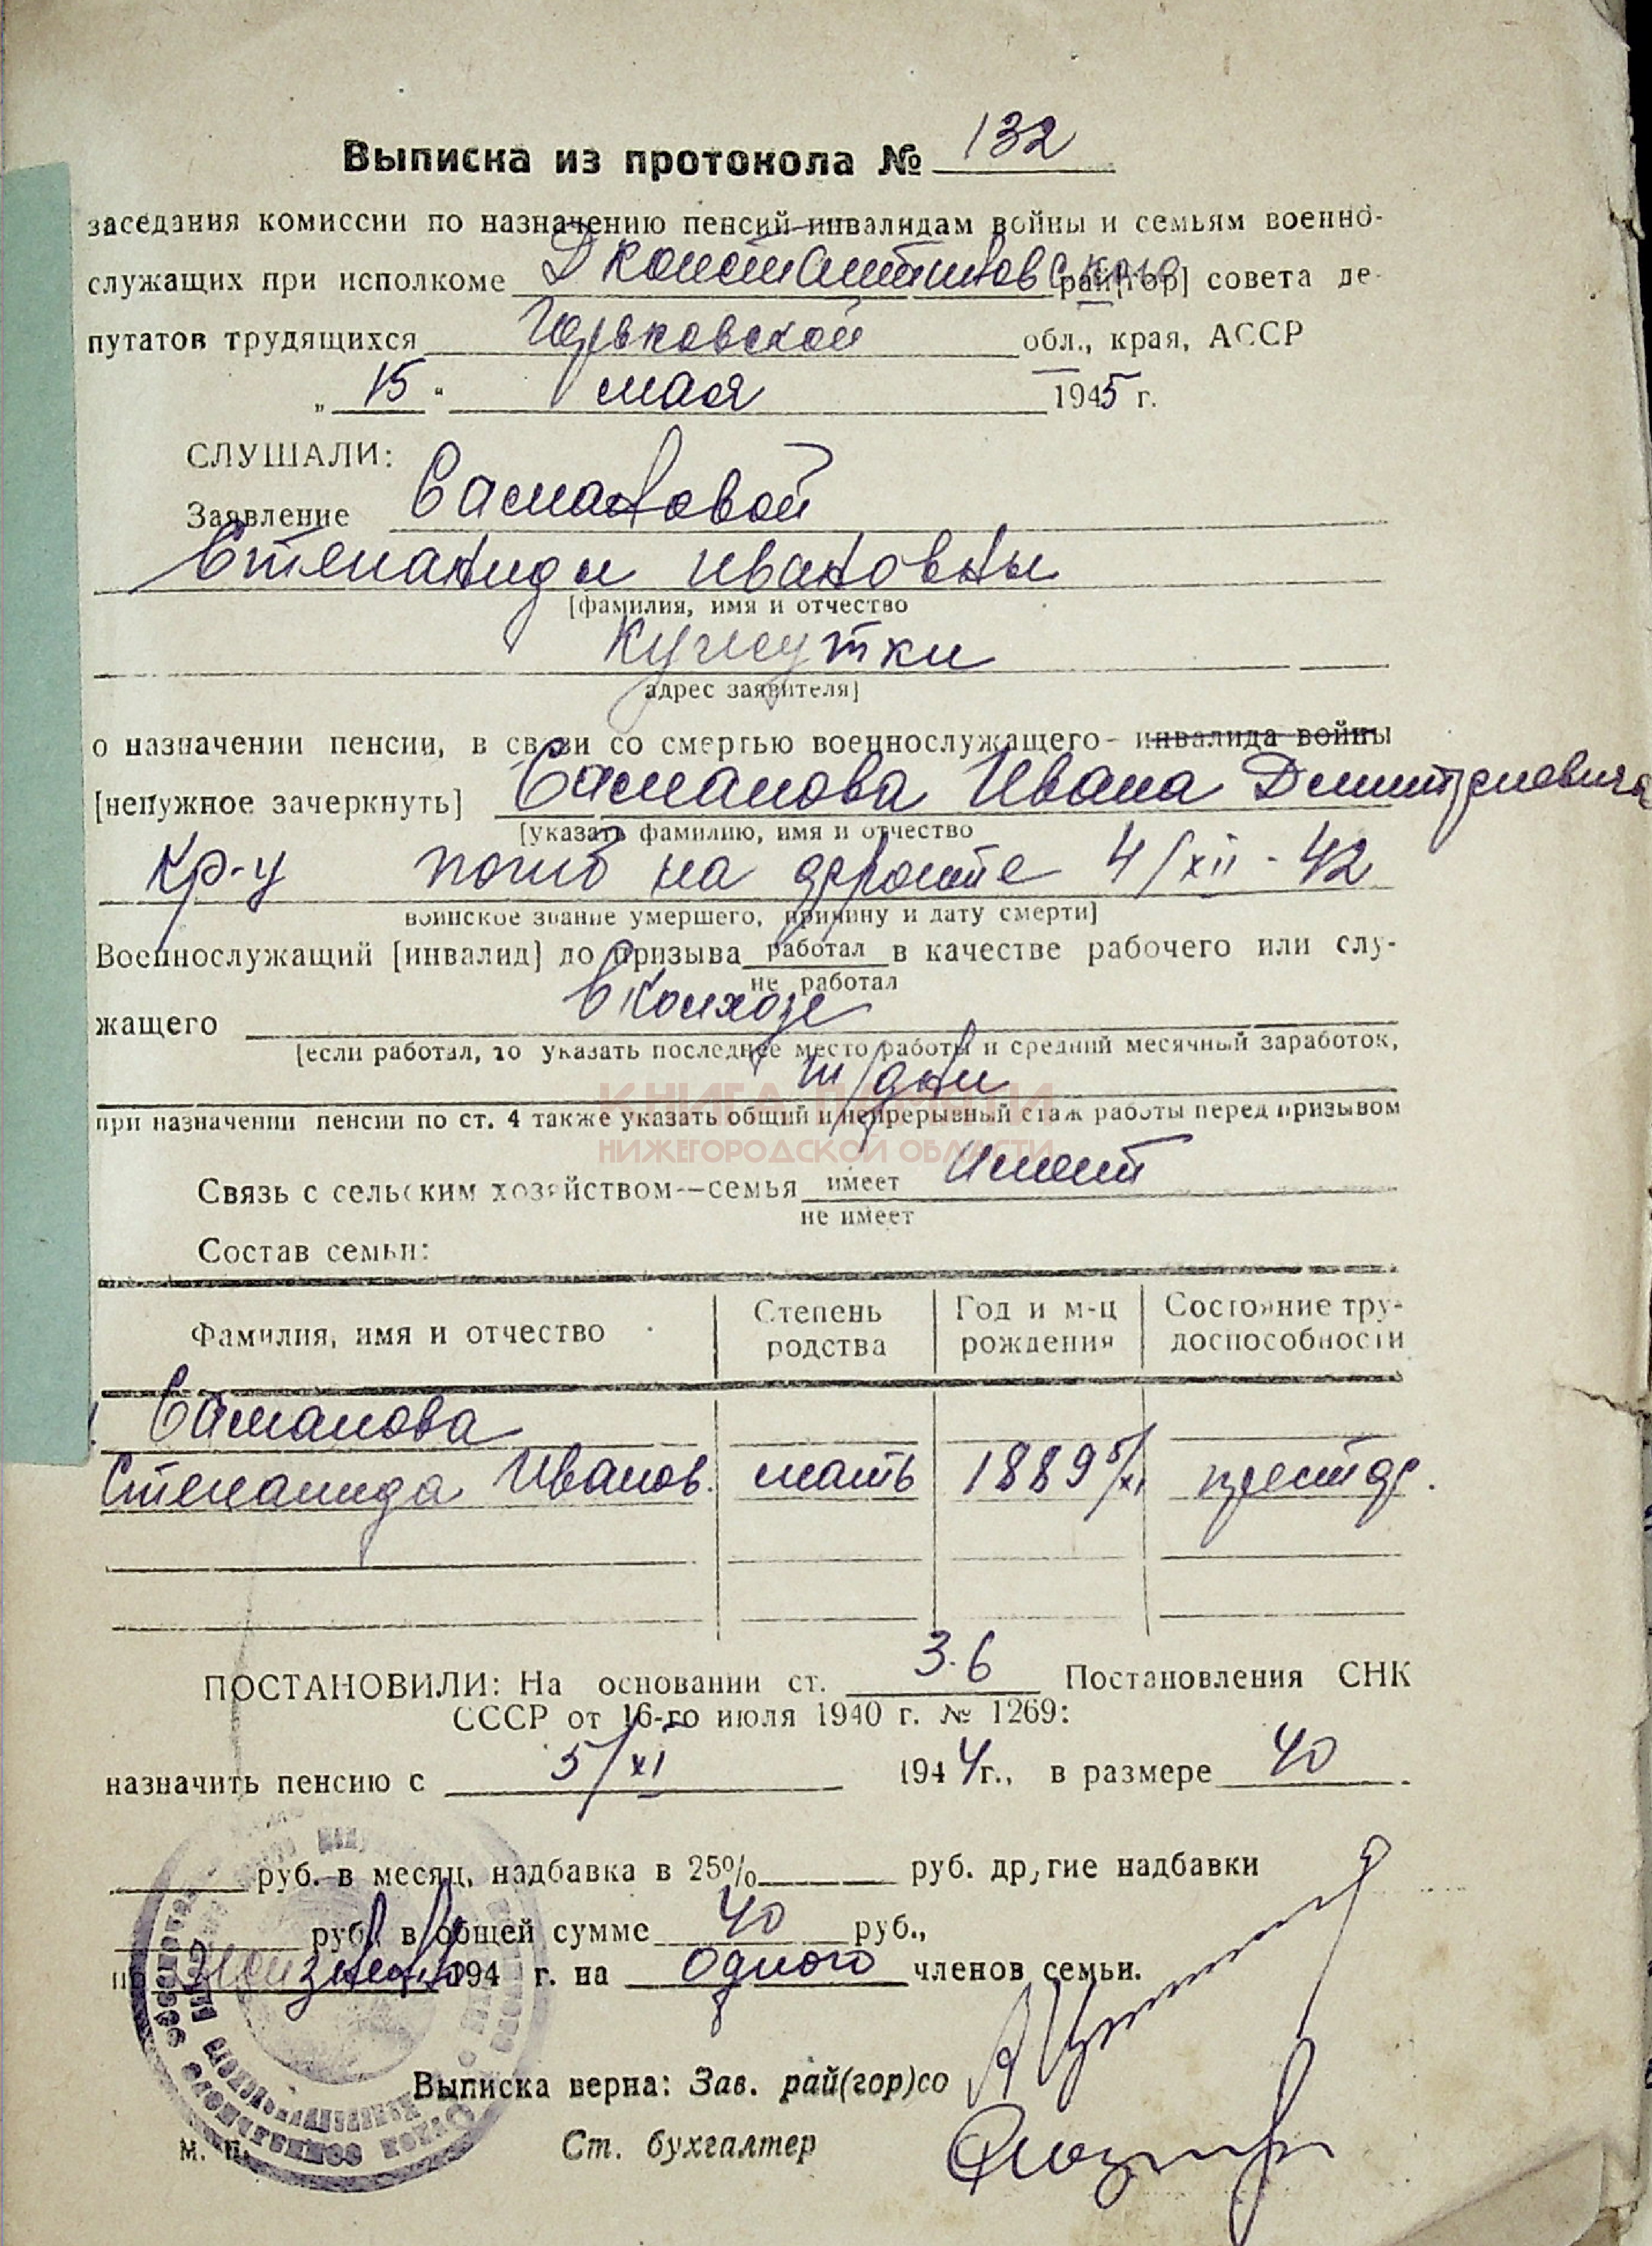 Выписка из протокола № 132
заседания комиссии по назначению пенсий инвалидам войны и семьям военно-
служащих при исполкоме Д Константиновского рай[гор] совета де-
путатов трудящихся Горьковской обл., края, АССР
„ 15 " мая 1945 г.
СЛУШАЛИ:
Заявление Самановой
Степаниды Ивановны
[фамилия, имя и отчество
Кужутки
адрес заявителя]
о назначении пенсии, в связи со смертью военнослужащего - инвалида войны
[ненужное зачеркнуть] Саманова Ивана Дмитриевича
[указать фамилию, имя и отчество
кр-ц погиб на фронте 4/XII - 42
воинское звание умершего, причину и дату смерти]
Военнослужащий [инвалид] до призыва работал в качестве рабочего или слу-
не работал
жащего в колхозе
[если работал, то указать последнее место работы и средний месячный заработок,
КНИГА ПАМЯТИ
при назначении пенсии по ст. 4 также указать общий и непрерывный стаж работы перед призывом
НИЖЕГОРОДСКОЙ ОБЛАСТИ
Связь с сельским хозяйством—семья имеет имеет
не имеет
Состав семьи:
Фамилия, имя и отчество Степень родства Год и м-ц рождения Состояние тру-доспособности
1. Саманова
Степанида Иванов. мать 1889 5/XI престар.
ПОСТАНОВИЛИ: На основании ст. 3.6 Постановления СНК
СССР от 16-го июля 1940 г. № 1269:
назначить пенсию с 5/XI 1944 г., в размере 40
руб. в месяц, надбавка в 25% руб. другие надбавки
руб. в общей сумме 40 руб.,
по пожизненно 194 г. на одного членов семьи.
Выписка верна: Зав. рай(гор)со
М. П. Ст. бухгалтер